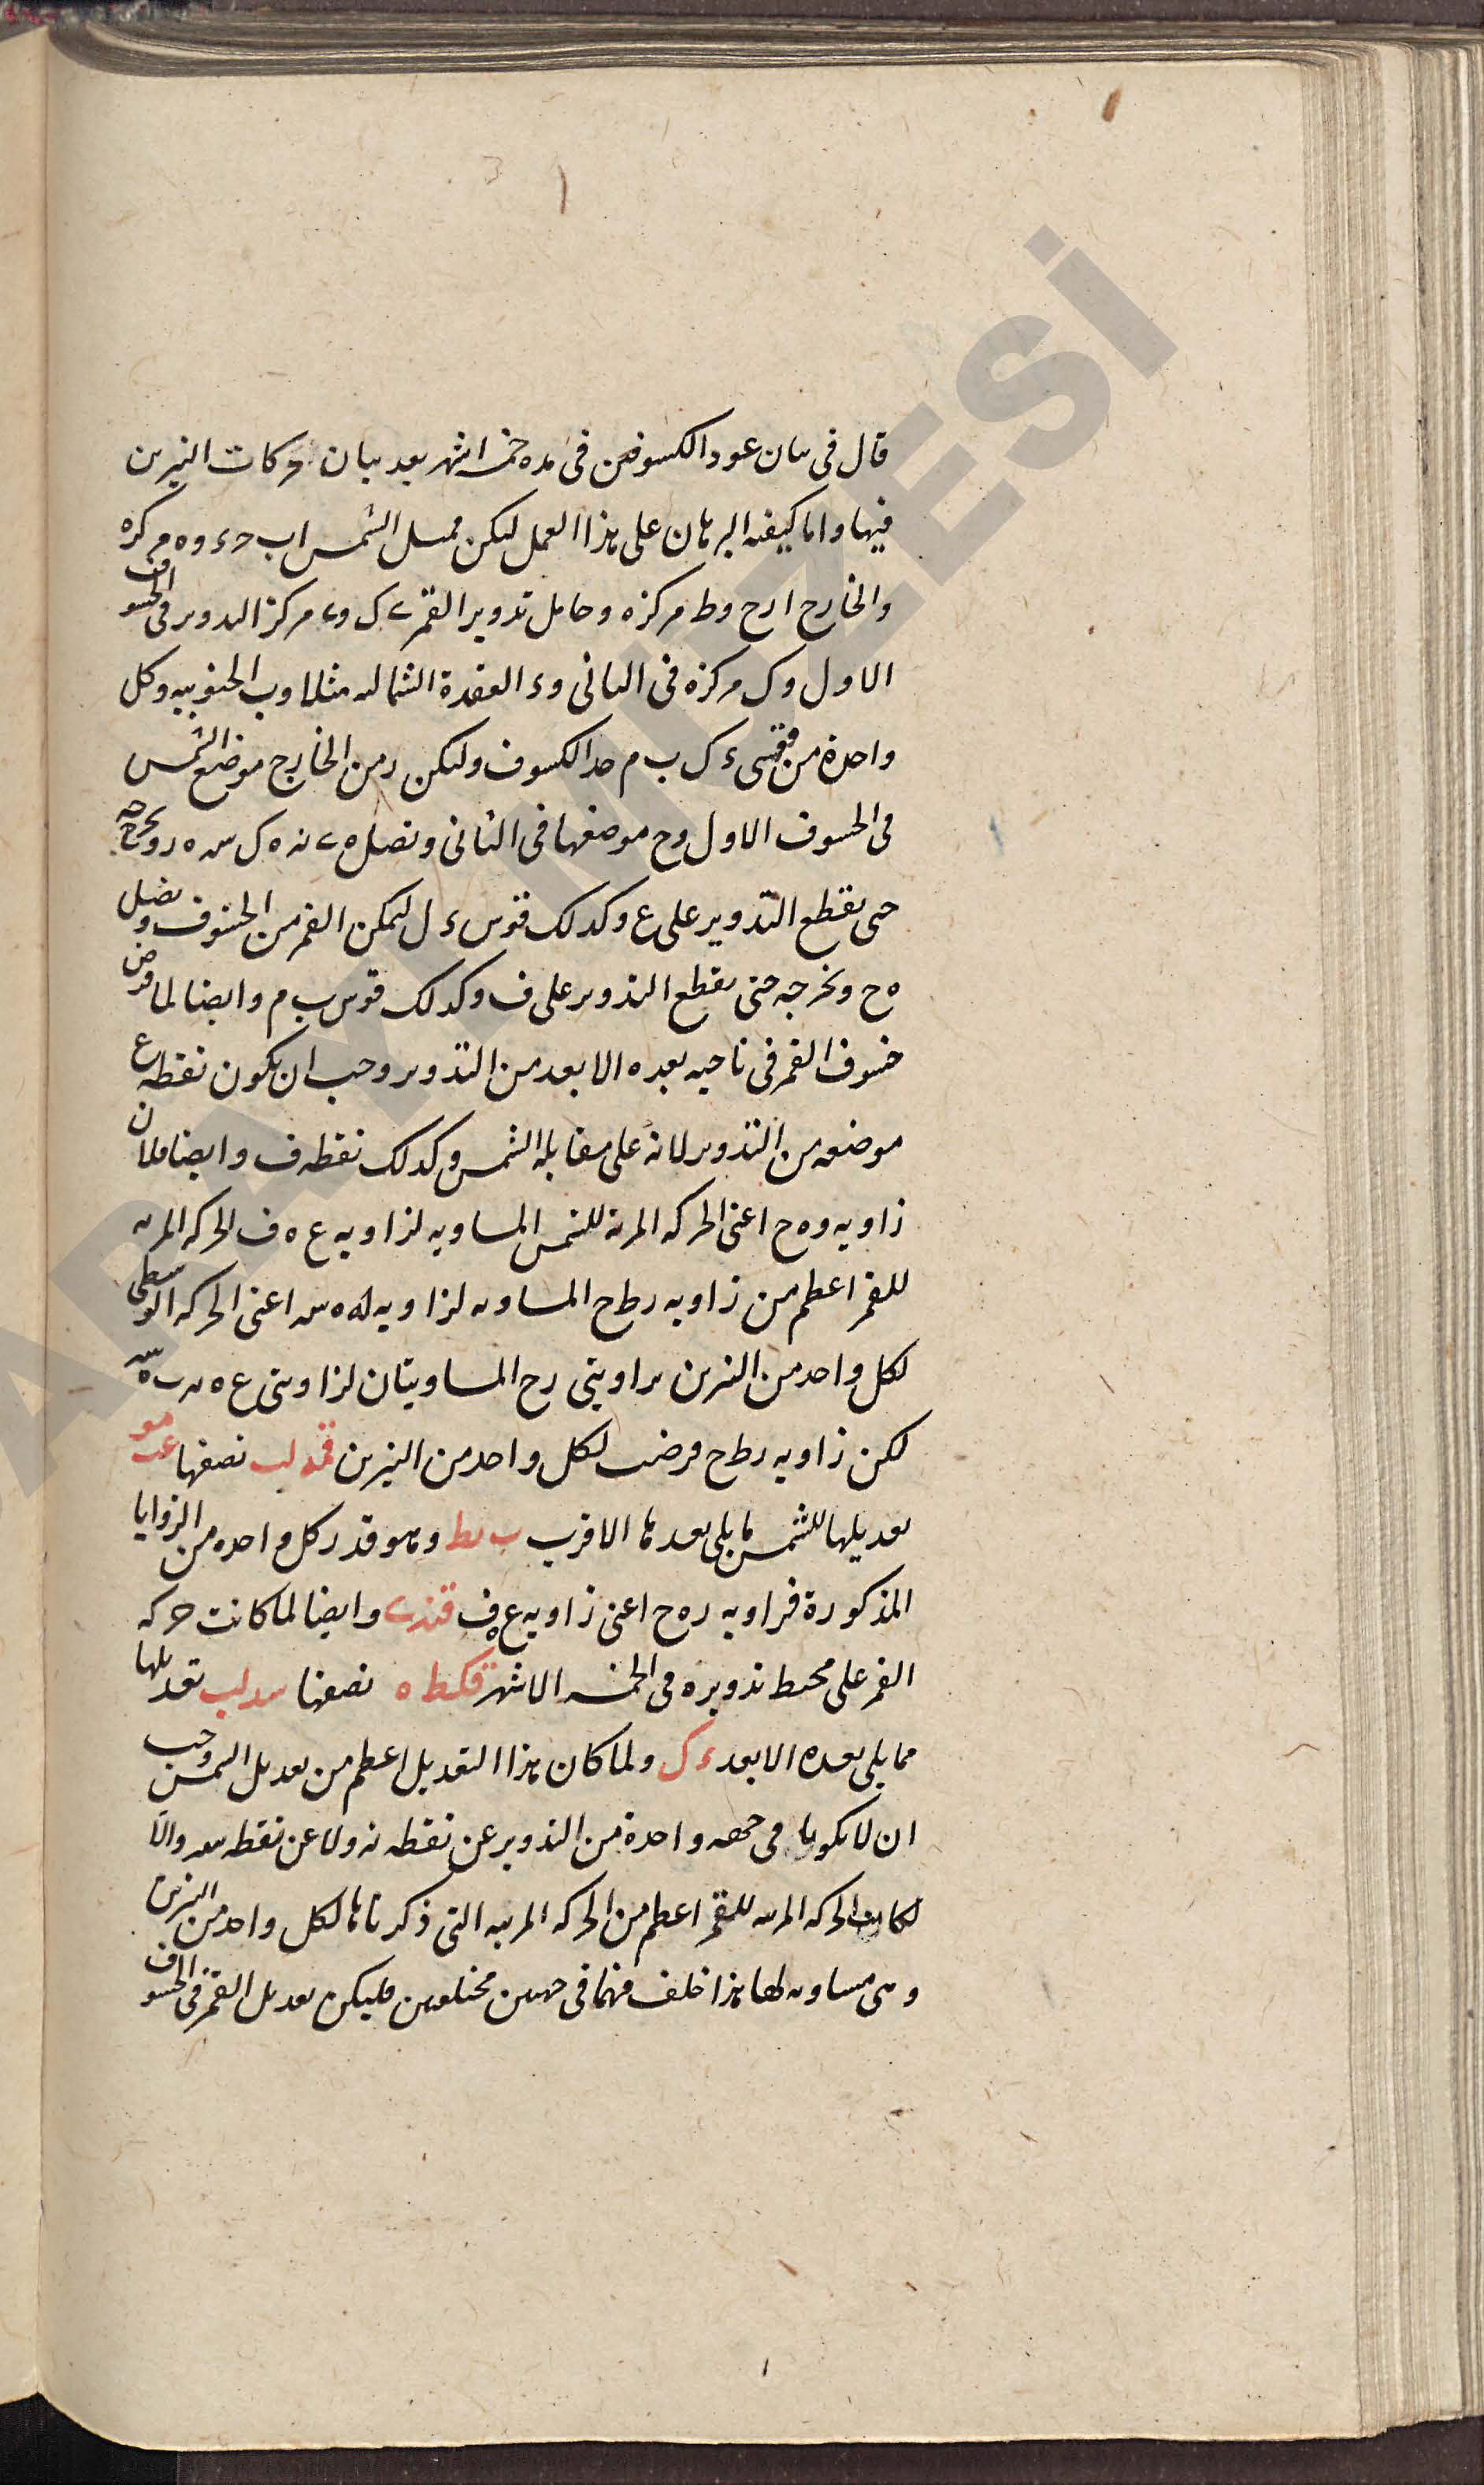 قال فى بيان عود الكسوفين فى مده خمسه اشهر بعد بيان حركات النيرين
فيها واما كيفيه البرهان على هذا العمل ليكن ممثل الشمس اب ح د وه مركزه
والخارج ا ر ح وط مركزه وحامل تدوير القمر ى ك وى مركز التدوير فى الخسوف
الاول وك مركزه فى الثانى وء العقدة الشماليه مثلا وب الجنوبيه وكل
واحدة من قوسى ء ل ب م حد الكسوف وليكن ر من الخارج موضع الشمس
فى الخسوف الاول وح موضعها فى الثانى ونصل ه ى نه ه ك سه ه ر ونخرجه
حتى يقطع التدوير على ع وكذلك قوس ء ل ليمكن القمر من الخسوف ونصل
ه ح ونخرجه حتى يقطع التدوير على ف وكذلك قوس ب م وايضا لما فرض
خسوف القمر فى ناحيه بعده الابعد من التدوير وجب ان يكون نقطه ع
موضعه من التدوير لانه على مقابله الشمس وكذلك نقطه ف وايضا فلان
زاويه ر ه ح اعنى الحركه المرئيه للشمس المساويه لزاويه ع ه ف الحركه المرئيه
للقمر اعظم من زاويه ر ط ح المساويه لزاويه نه ه سه اعنى الحركه الوسطى
لكل واحد من النيرين بزاويتى ر ح المساويتان لزاويتى ع ه نه ف ه سه
لكن زاويه ر ط ح فرضت لكل واحد من النيرين قمه لب نصفها عب مو
تعديلها للشمس مما يلى بعدها الاقرب ب يط وهو قدر كل واحده من الزوايا
المذكورة فزاويه ر ه ح اعنى زاويه ع ه ف قند ى وايضا لما كانت حركه
القمر على محيط تدويره فى الخمسه الاشهر قكط ه نصفها سد لب تعديلها
مما يلى بعده الابعد ء ك ولما كان هذا التعديل اعظم من تعديل الشمس وجب
ان لا يكونا فى جهه واحدة من التدوير عن نقطه نه ولا عن نقطه سه والا
لكانت الحركه المرئيه للقمر اعظم من الحركه المرئيه التى ذكرناها لكل واحد من النيرين
وهى مساويه لها هذا خلف فهما فى جهتين مختلفتين فليكن تعديل القمر فى الخسوف